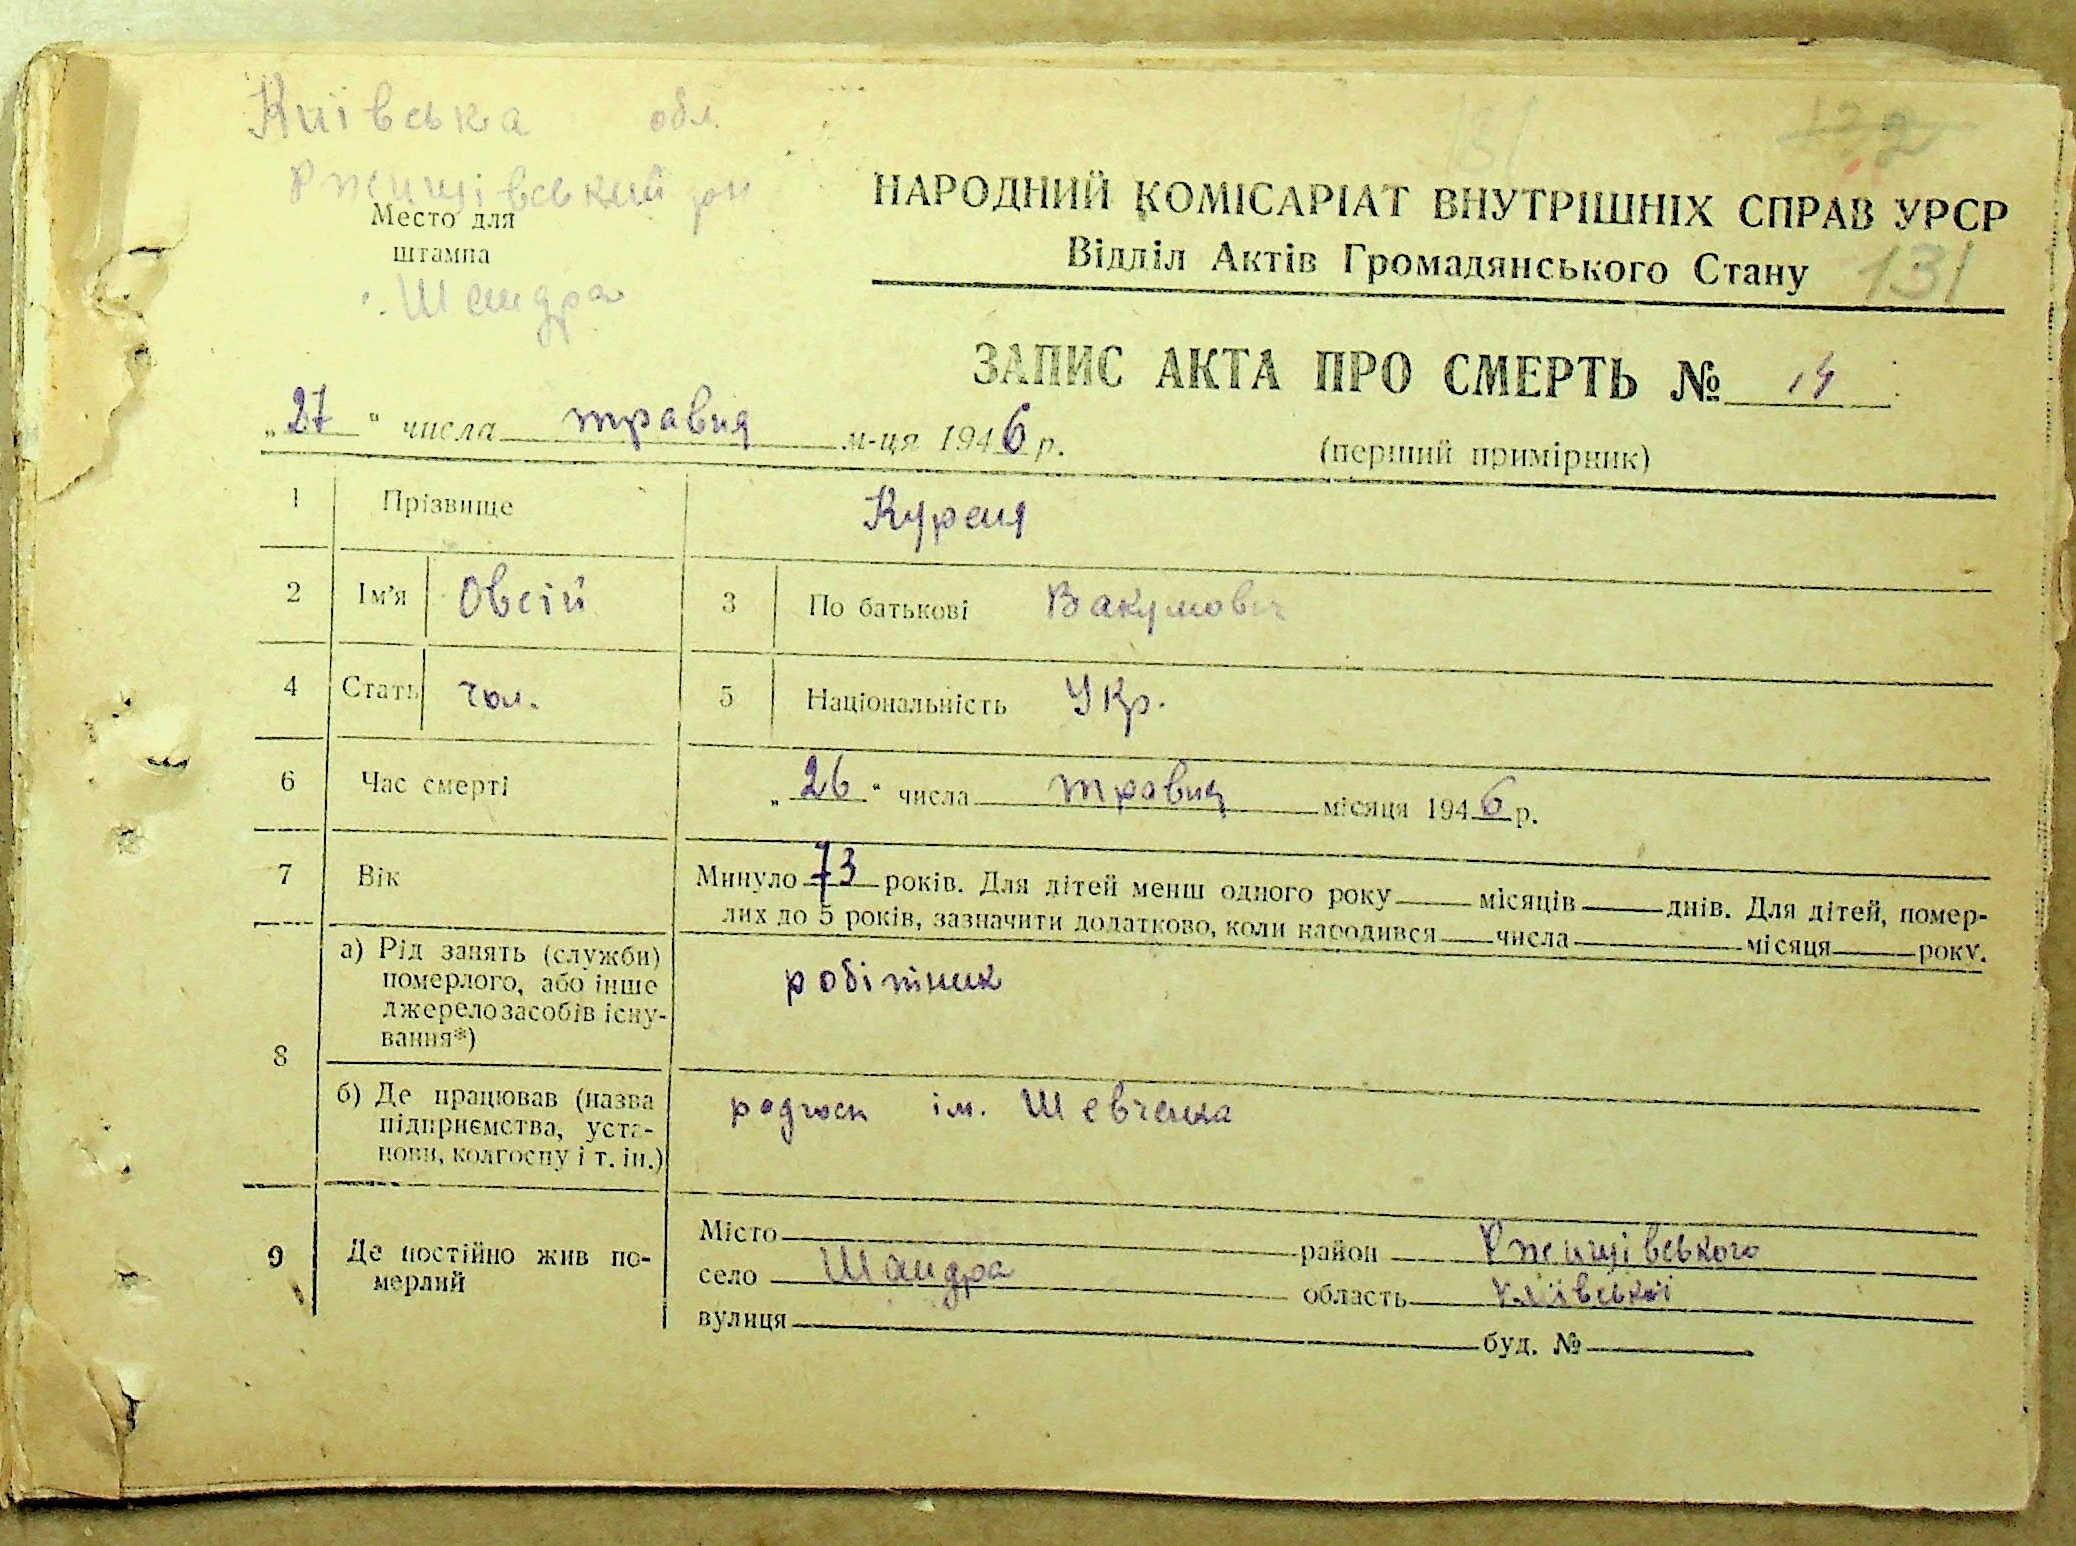 Київська обл.
Ржищівський рн
Место для
штампа
Шандра
132
НАРОДНИЙ КОМІСАРІАТ ВНУТРІШНІХ СПРАВ УРСР
Відділ Актів Громадянського Стану 131
ЗАПИС АКТА ПРО СМЕРТЬ № 14
„27“ числа травня м-ця 1946 р.
(перший примірник)
1 Прізвище Куреня
2 Ім’я Овсій 3 По батькові Вакумович
4 Стать чол. 5 Національність Укр.
6 Час смерті „26“ числа травня місяця 1946 р.
7 Вік Минуло 73 років. Для дітей менш одного року місяців днів. Для дітей, помер-
лих до 5 років, зазначити додатково, коли народився числа місяця року.
8 а) Рід занять (служби)
померлого, або інше
джерело засобів існу-
вання*)
робітник
б) Де працював (назва
підприємства, уста-
нови, колгоспу і т. ін.)
радгосп ім. Шевченка
9 Де постійно жив по-
мерлий
Місто район Ржищівського
село Шандра область Київської
вулиця буд. №